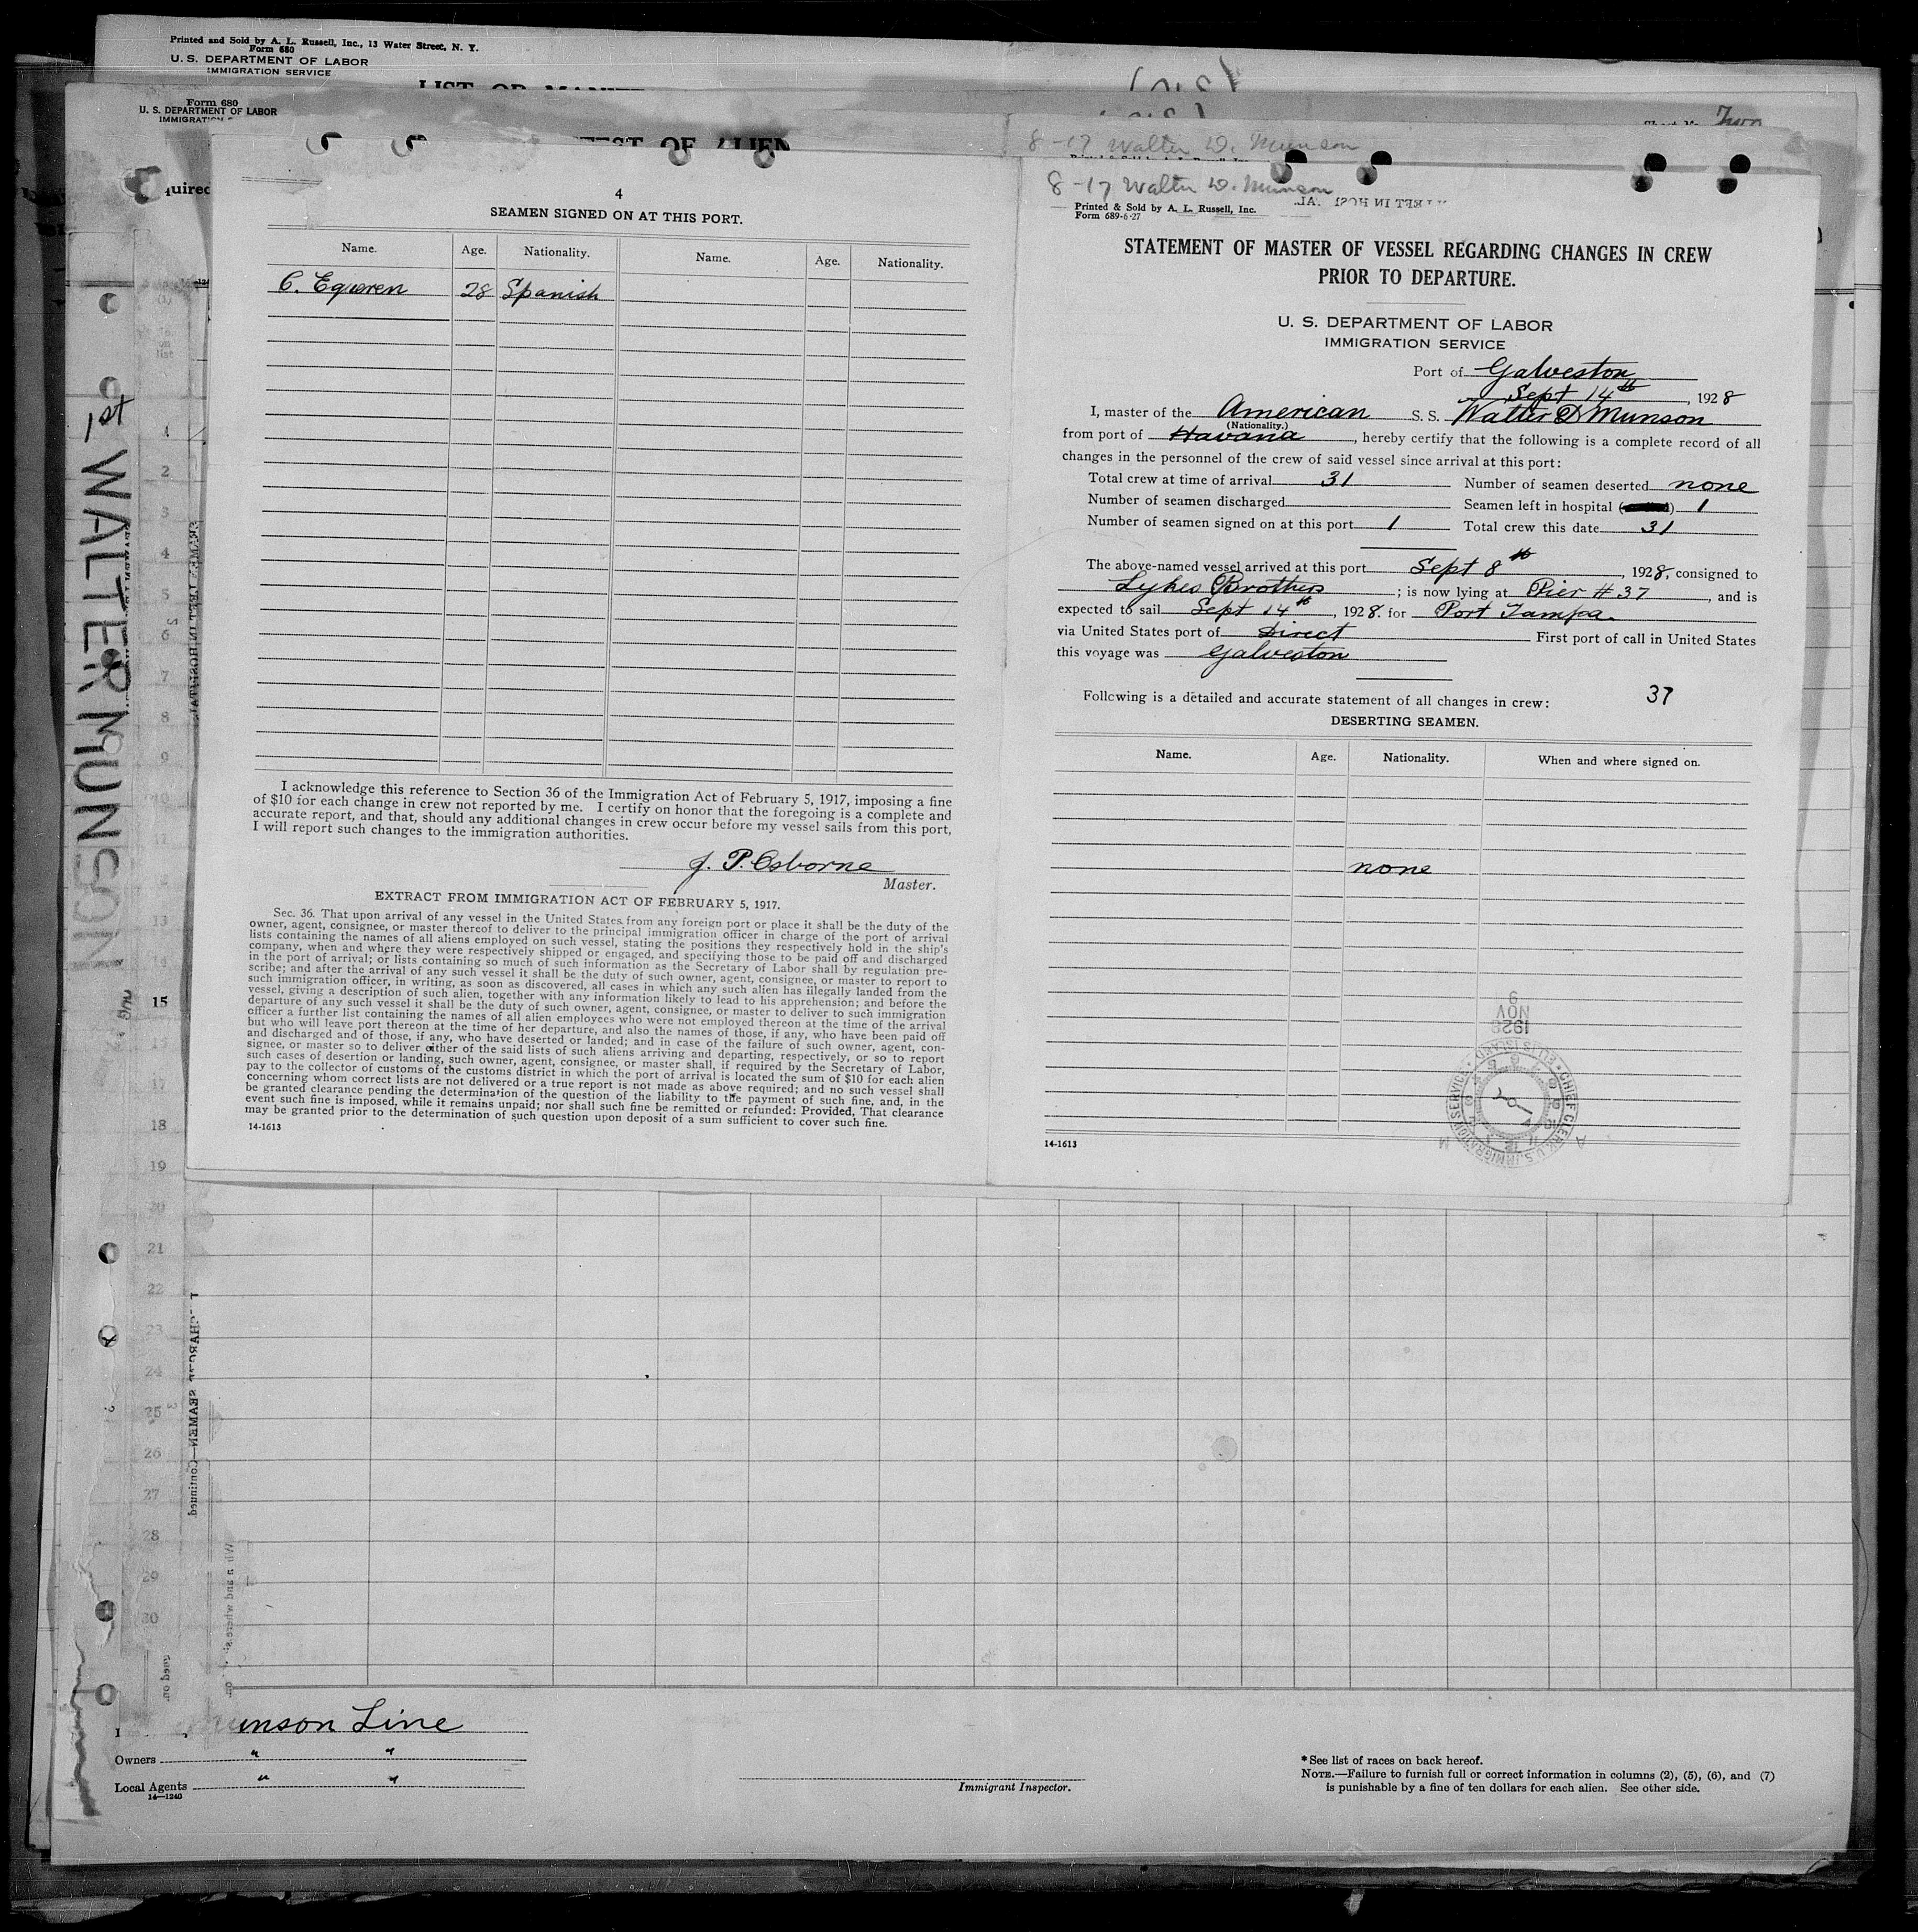 Printed and Sold by A. L. Russell, Inc., 13 Water Street, N. Y.
Form 680
U. S. DEPARTMENT OF LABOR
IMMIGRATION SERVICE
Form 680
U. S. DEPARTMENT OF LABOR
Two
8-17 Walter D. Munson
1st WALTER MUNSON
4
SEAMEN SIGNED ON AT THIS PORT.
Name. Age. Nationality. Name. Age. Nationality.
C. Eguren 28 Spanish
I acknowledge this reference to Section 36 of the Immigration Act of February 5, 1917, imposing a fine
of $10 for each change in crew not reported by me. I certify on honor that the foregoing is a complete and
accurate report, and that, should any additional changes in crew occur before my vessel sails from this port,
I will report such changes to the immigration authorities.
J. P. Osborne
Master.
EXTRACT FROM IMMIGRATION ACT OF FEBRUARY 5, 1917.
Sec. 36. That upon arrival of any vessel in the United States from any foreign port or place it shall be the duty of the
owner, agent, consignee, or master thereof to deliver to the principal immigration officer in charge of the port of arrival
lists containing the names of all aliens employed on such vessel, stating the positions they respectively hold in the ship's
company, when and where they were respectively shipped or engaged, and specifying those to be paid off and discharged
in the port of arrival; or lists containing so much of such information as the Secretary of Labor shall by regulation pre-
scribe; and after the arrival of any such vessel it shall be the duty of such owner, agent, consignee, or master to report to
such immigration officer, in writing, as soon as discovered, all cases in which any such alien has illegally landed from the
vessel, giving a description of such alien, together with any information likely to lead to his apprehension; and before the
departure of any such vessel it shall be the duty of such owner, agent, consignee, or master to deliver to such immigration
officer a further list containing the names of all alien employees who were not employed thereon at the time of the arrival
but who will leave port thereon at the time of her departure, and also the names of those, if any, who have been paid off
and discharged and of those, if any, who have deserted or landed; and in case of the failure of such owner, agent, con-
signee, or master so to deliver either of the said lists of such aliens arriving and departing, respectively, or so to report
such cases of desertion or landing, such owner, agent, consignee, or master shall, if required by the Secretary of Labor,
pay to the collector of customs of the customs district in which the port of arrival is located the sum of $10 for each alien
concerning whom correct lists are not delivered or a true report is not made as above required; and no such vessel shall
be granted clearance pending the determination of the question of the liability to the payment of such fine, and, in the
event such fine is imposed, while it remains unpaid; nor shall such fine be remitted or refunded: Provided, That clearance
may be granted prior to the determination of such question upon deposit of a sum sufficient to cover such fine.
14-1613
8-17 Walter D. Munson
Printed & Sold by A. L. Russell, Inc.
Form 689-6-27
STATEMENT OF MASTER OF VESSEL REGARDING CHANGES IN CREW
PRIOR TO DEPARTURE.
U. S. DEPARTMENT OF LABOR
IMMIGRATION SERVICE
Port of Galveston
Sept 14th, 1928
I, master of the American S. S. Walter D Munson
(Nationality.)
from port of Havana, hereby certify that the following is a complete record of all
changes in the personnel of the crew of said vessel since arrival at this port:
Total crew at time of arrival 31 Number of seamen deserted none
Number of seamen discharged Seamen left in hospital 1
Number of seamen signed on at this port 1 Total crew this date 31
The above-named vessel arrived at this port Sept 8th, 1928, consigned to
Lykes Brothers; is now lying at Pier # 37, and is
expected to sail Sept 14th, 1928. for Port Tampa
via United States port of Direct First port of call in United States
this voyage was Galveston
Following is a detailed and accurate statement of all changes in crew: 37
DESERTING SEAMEN.
Name. Age. Nationality. When and where signed on.
none
14-1613
15
18
19
20
21
22
23
24
25
26
27
28
29
30
Munson Line
Owners " "
Local Agents " "
14—1240
Immigrant Inspector.
*See list of races on back hereof.
NOTE.—Failure to furnish full or correct information in columns (2), (5), (6), and (7)
is punishable by a fine of ten dollars for each alien. See other side.